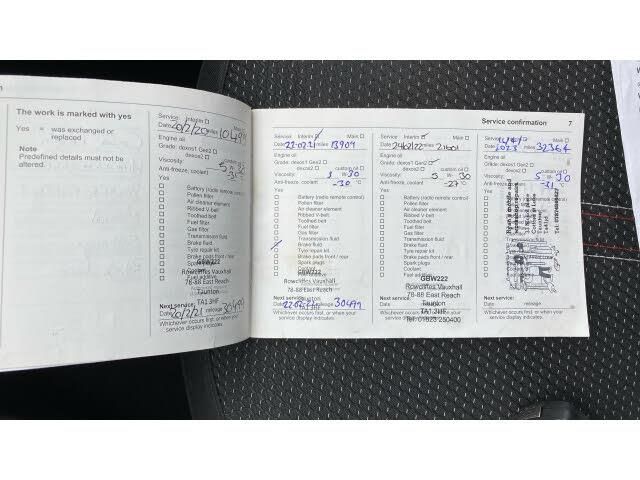 The work is marked with yes
Yes = was exchanged or
replaced
Note
Predefined details must not be
altered.
Service: Interim
Date 20/2/20 miles 10499
Engine oil
Grade: dexos1 Gen2
dexos2 custom oil
Viscosity:
Anti-freeze, coolant
Yes
Battery (radio remote control)
Pollen filter
Air cleaner element
Ribbed V-belt
Toothed belt
Fuel filter
Gas filter
Transmission fluid
Brake fluid
Tyre repair kit
Brake pads front / rear
Spark plugs
Coolant
Fuel additive
GBW222
Rowcliffes Vauxhall
78-88 East Reach
Taunton
TA1 3HF
Next service:
Date 20/2/21 mileage 30499
Whichever occurs first, or when your
service display indicates.
Service confirmation 7
Service: Interim Main
Date 22.02.21 miles 13909
Engine oil
Grade: dexos1 Gen2
dexos2 custom oil
Viscosity: 5 W- 30
Anti-freeze, coolant -30 °C
Yes
Battery (radio remote control)
Pollen filter
Air cleaner element
Ribbed V-belt
Toothed belt
Fuel filter
Gas filter
Transmission fluid
Brake fluid
Tyre repair kit
Brake pads front / rear
Spark plugs
GBW222
Rowcliffes Vauxhall
78-88 East Reach
Next service:
Date mileage 30499
Whichever occurs first, or when your
service display indicates.
Service: Interim Main
Date 24/02/22 miles 21601
Engine oil
Grade: dexos1 Gen2
dexos2 custom oil
Viscosity: 5 W- 30
Anti-freeze, coolant -27 °C
Yes
Battery (radio remote control)
Pollen filter
Air cleaner element
Ribbed V-belt
Toothed belt
Fuel filter
Gas filter
Transmission fluid
Brake fluid
Tyre repair kit
Brake pads front / rear
Spark plugs
Coolant
Fuel additive
GBW222
Rowcliffes Vauxhall
78-88 East Reach
Taunton
TA1 3HF
Tel: 01823 250400
Next service:
Date mileage
Whichever occurs first, or when your
service display indicates.
Service: Main
Date miles 32364
Engine oil
Grade: dexos1 Gen2
dexos2 custom oil
Viscosity: 5 W- 30
Anti-freeze, coolant -31 °C
Yes
Next service:
Date mileage
Whichever occurs first, or when your
service display indicates.